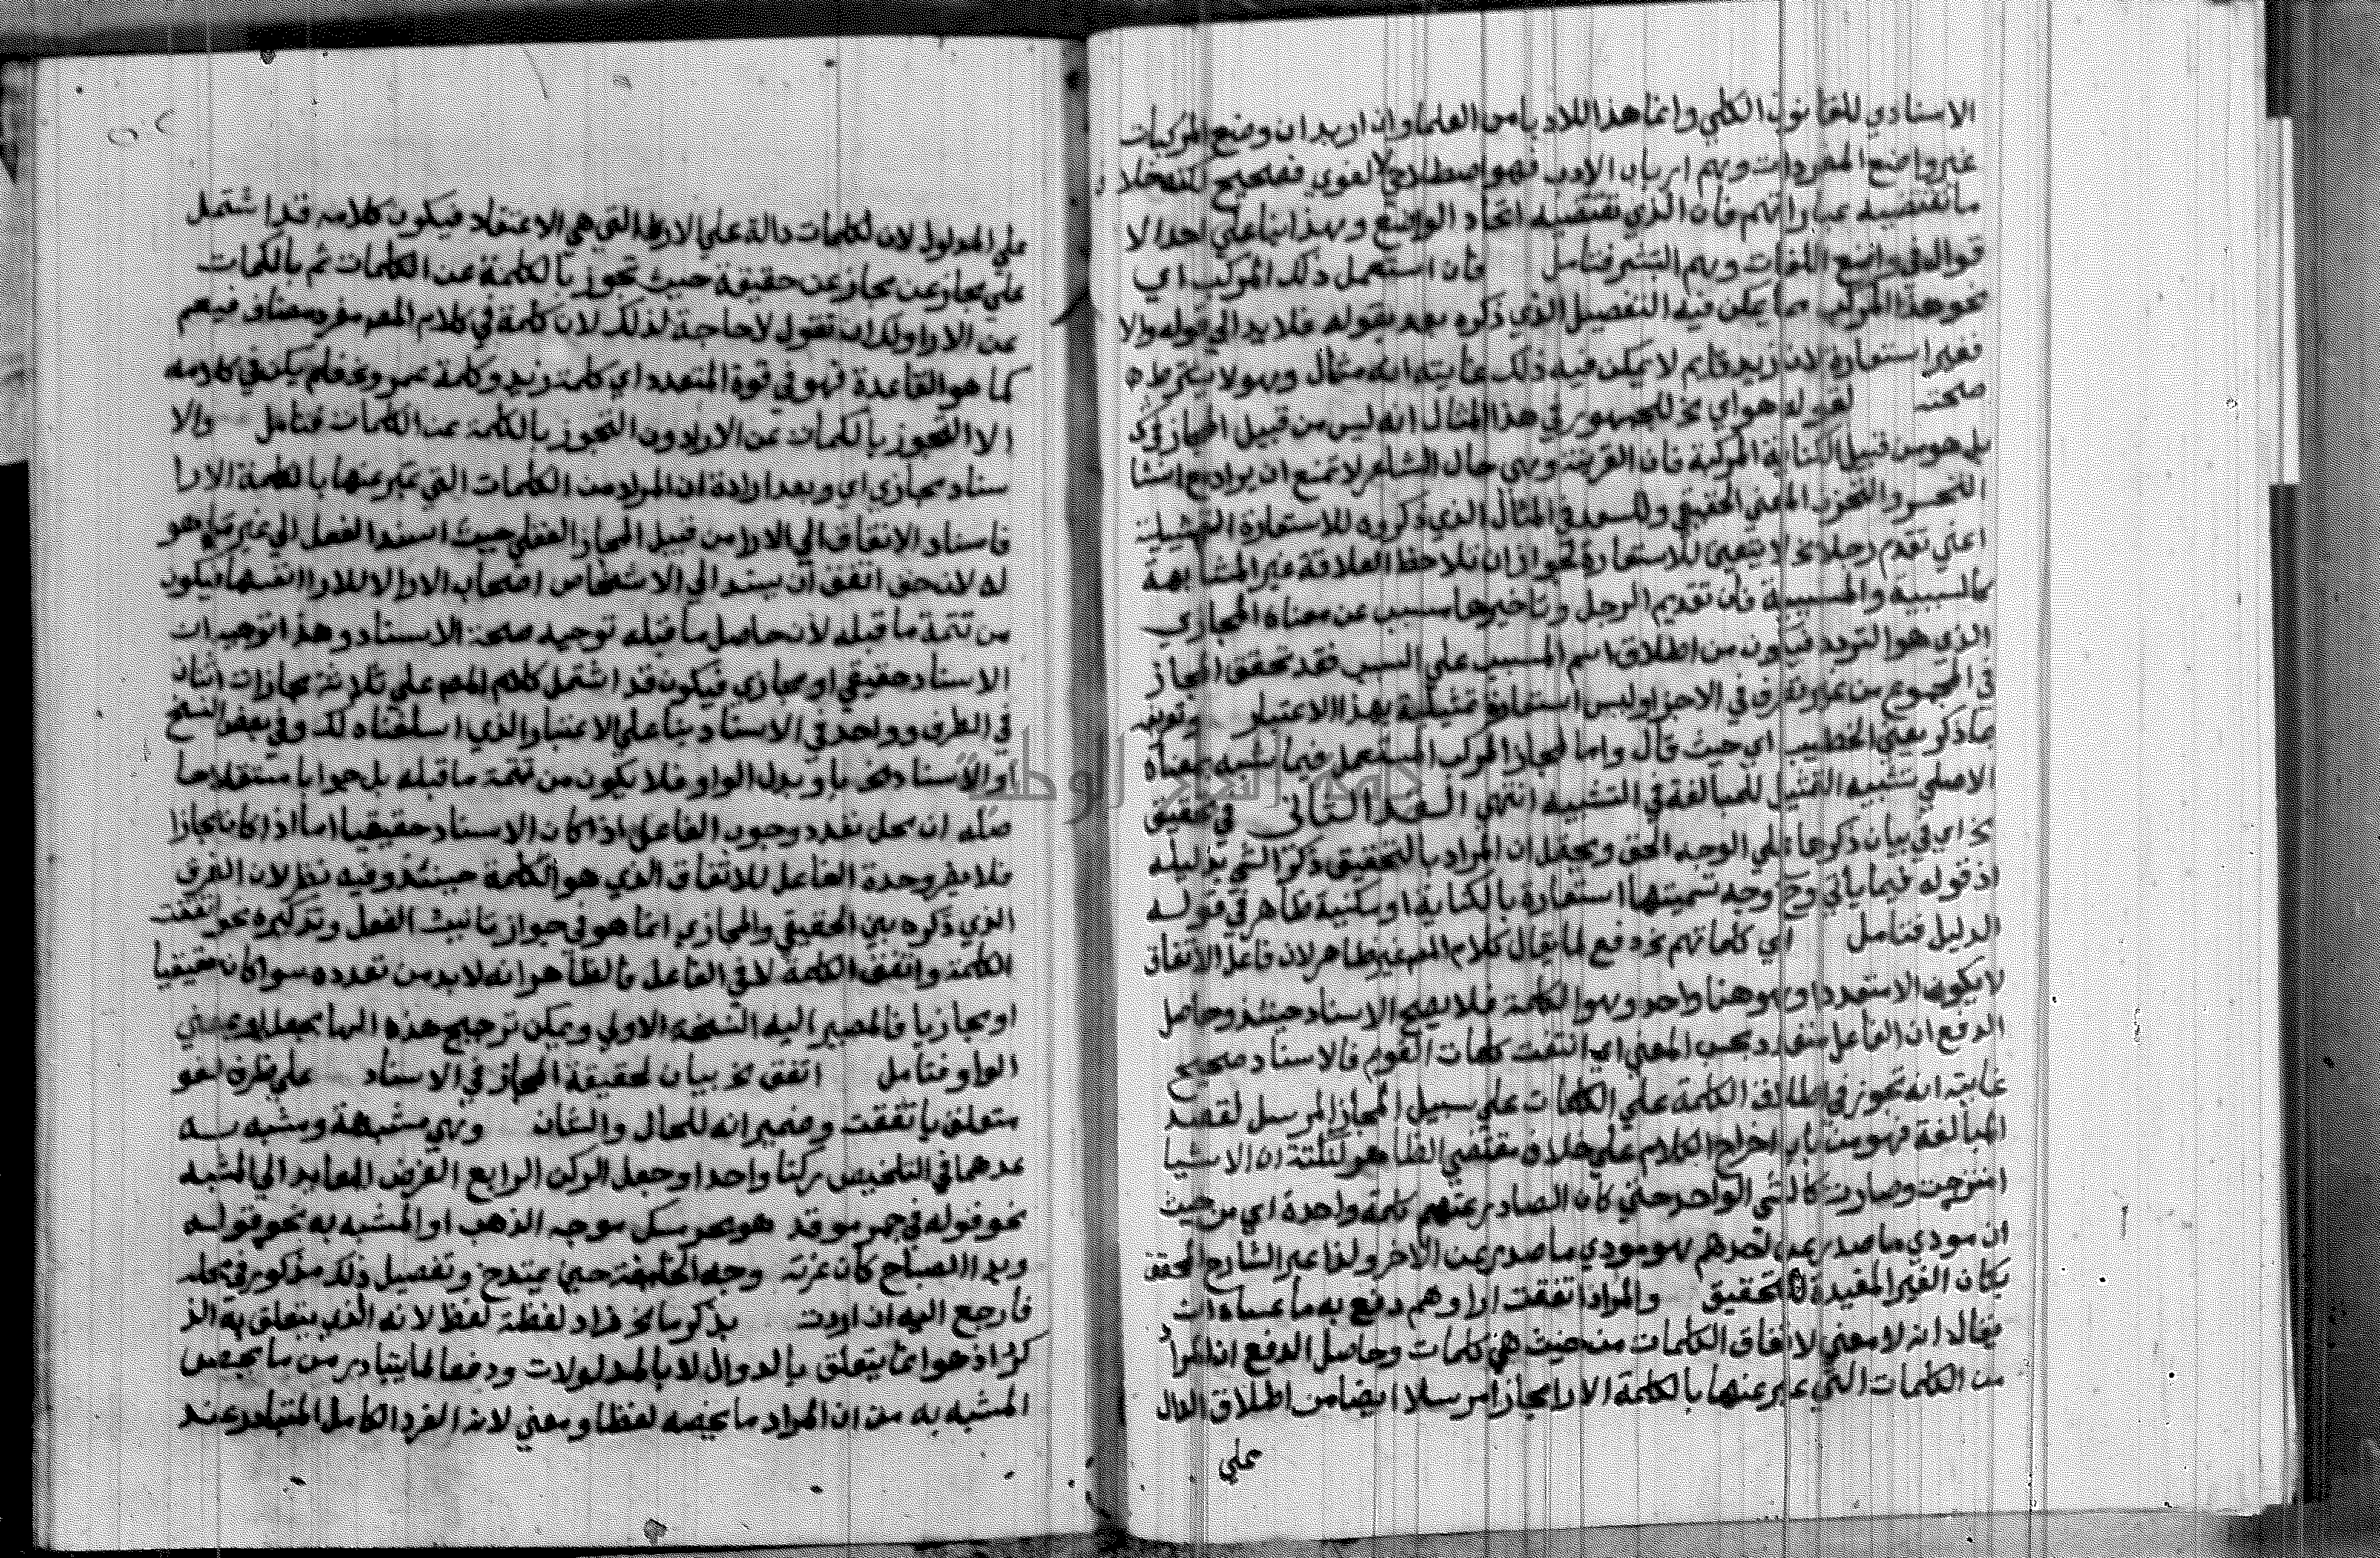 الاسنادي للقانون الكلي وانما هذا للادبا من العلما وان اريد ان وضع المركبات
غير واضع المفردات وهم ارباب الادب فهو اصطلاحي لا لغوي فصحيح لكنه خلاف
ما تقتضيه عباراتهم فان الذي تقتضيه اتحاد الواضع وهذا بنا علي احد الا
قوال في واضع اللغات وهم البشر فتامل فان استعمل ذلك المركب اي
نحو هذا المركب مما يمكن فيه التفصيل الذي ذكره بعد بقوله فلا بد الي قوله والا
فغير استعارة لان زيد قايم لا يمكن فيه ذلك غايته انه مثال وهو لا يشترط
صحته لقوله هواي الخ للجمهور في هذا المثال انه ليس من قبيل المجاز المركب
بل هو من قبيل الكناية المركبة فان القرينة وهي حال الشاعر لا تمنع ان يراد مع انشا
التحسر والتحزن المعني الحقيقي وللسعد في المثال الذي ذكروه للاستعارة التمثيلية
اعني تقدم رجلا الخ لا يتعين للاستعارة لجواز ان تلاحظ العلاقة غير المشابهة
كالسببية والمسببية فان تقديم الرجل وتاخيرها سبب عن معناه المجازي
الذي هو التردد فيكون من اطلاق اسم المسبب علي السبب فقد تحقق المجاز
في المجموع من غير تصرف في الاجزا وليس استعارة تمثيلية بهذا الاعتبار
بما ذكر يعني الخطيب اي حيث قال واما المجاز المركب المستعمل فيما شبه بمعناه
الاصلي تشبيه التمثيل للمبالغة في التشبيه انتهي العقد الثاني في تحقيق
الخ اي في بيان ذكرها علي الوجه الحق ويحتمل ان المراد بالتحقيق ذكر الشي بدليله
اذ قوله فيما ياتي وح وجه تسميتها استعارة بالكناية او مكنية ظاهر في قوله
الدليل فتامل اي كلماتهم الخ دفع لما يقال كلام المص غير ظاهر لان فاعل الاتفاق
لا يكون الا متعددا وهو هنا واحد وهو الكلمة فلا يصح الاسناد حينئذ وحاصل
الدفع ان الفاعل متعدد بحسب المعني اي اتفقت كلمات القوم فالاسناد صحيح
غايته انه تجوز في اطلاق الكلمة علي الكلمات علي سبيل المجاز المرسل لقصد
المبالغة فهو من باب اخراج الكلام علي خلاف مقتضي الظاهر لنكتة ان الاشيا
امتزجت وصارت كالشي الواحد حتي كان الصادر عنهم كلمة واحدة اي من حيث
ان مودي ما صدر عن احدهم هو مودي ما صدر عن الاخر ولذا عبر الشارح المحقق
بكان الغير المفيدة للتحقيق والمراد اتفقت ارا وهم دفع به ما عساه ان
يقال انه لا معني لاتفاق الكلمات من حيث هي كلمات وحاصل الدفع ان المراد
من الكلمات التي عبر عنها بالكلمة الارا مجازا مرسلا ايضا من اطلاق الدال
علي
علي المدلول لان الكلمات دالة علي الارا التي هي الاعتقاد فيكون كلامه قد اشتمل
علي مجاز عن مجاز عن حقيقة حيث تجوز بالكلمة عن الكلمات ثم بالكلمات
عن الارا ولك ان تقول لا حاجة لذلك لان كلمة في كلام المص مفرد مضاف فيعم
كما هو القاعدة فهو في قوة المتعدد اي كلمة زيد وكلمة عمرو الخ فلم يكن في كلامه
الا التجوز بالكلمات عن الارا دون التجوز بالكلمة عن الكلمات فتامل والا
سناد مجازي اي وبعد ارادة ان المراد من الكلمات التي عبر عنها بالكلمة الارا
فاسناد الاتفاق الي الارا من قبيل المجاز العقلي حيث اسند الفعل الي غير ما هو
له لان حق اتفق ان يسند الي الاشخاص اصحاب الارا لا للارا نفسها ويكون
من تتمة ما قبله لان حاصل ما قبله توجيه صحة الاسناد وهذا توجيه ان
الاسناد حقيقي او مجازي فيكون قد اشتمل كلام المص علي ثلاثة مجازات اثنان
في الطرف وواحد في الاسناد بنا علي الاعتبار الذي اسلفناه لك وفي بعض النسخ
او الاسناد الخ باو بدل الواو فلا يكون من تتمة ما قبله بل جوابا مستقلا حا
صله ان محل تعدد وجوب الفاعل اذا كان الاسناد حقيقيا اما اذا كان مجازا
فلا يضر وحدة الفاعل للاتفاق الذي هو الكلمة حينئذ وفيه نظر لان الفرق
الذي ذكره بين الحقيقي والمجازي انما هو في جواز تانيث الفعل وتذكيره نحو اتفقت
الكلمة واتفق الكلمة لا في الفاعل فالظاهر انه لا بد من تعدده سوا كان حقيقيا
او مجازيا فالمصير اليه النسخة الاولي ويمكن ترجيح هذه اليها بجعل او بمعني
الواو فتامل اتفق الخ بيان لحقيقة المجاز في الاسناد علي ظرف لغو
متعلق باتفقت وضمير انه للحال والشان وهي مشبهة ومشبه به
عدهما في التلخيص ركنا واحدا وجعل الركن الرابع الغرض العايد الي المشبه
نحو قوله في جمر موقد هو بحر مسك موجه الذهب او المشبه به نحو قوله
وبدا الصباح كان غرته وجه الخليفة حين يمتدح وتفصيل ذلك مذكور في محله
فارجع اليه ان اردت بذكر ما الخ زاد لفظة لفظ لانه الذي يتعلق به الذ
كر اذ هو انما يتعلق بالدوال لا بالمدلولات ودفعا لما يتبادر من ما يخص
المشبه به من ان المراد ما يخصه لفظا ومعني لانه الفرد الكامل المتبادر عند